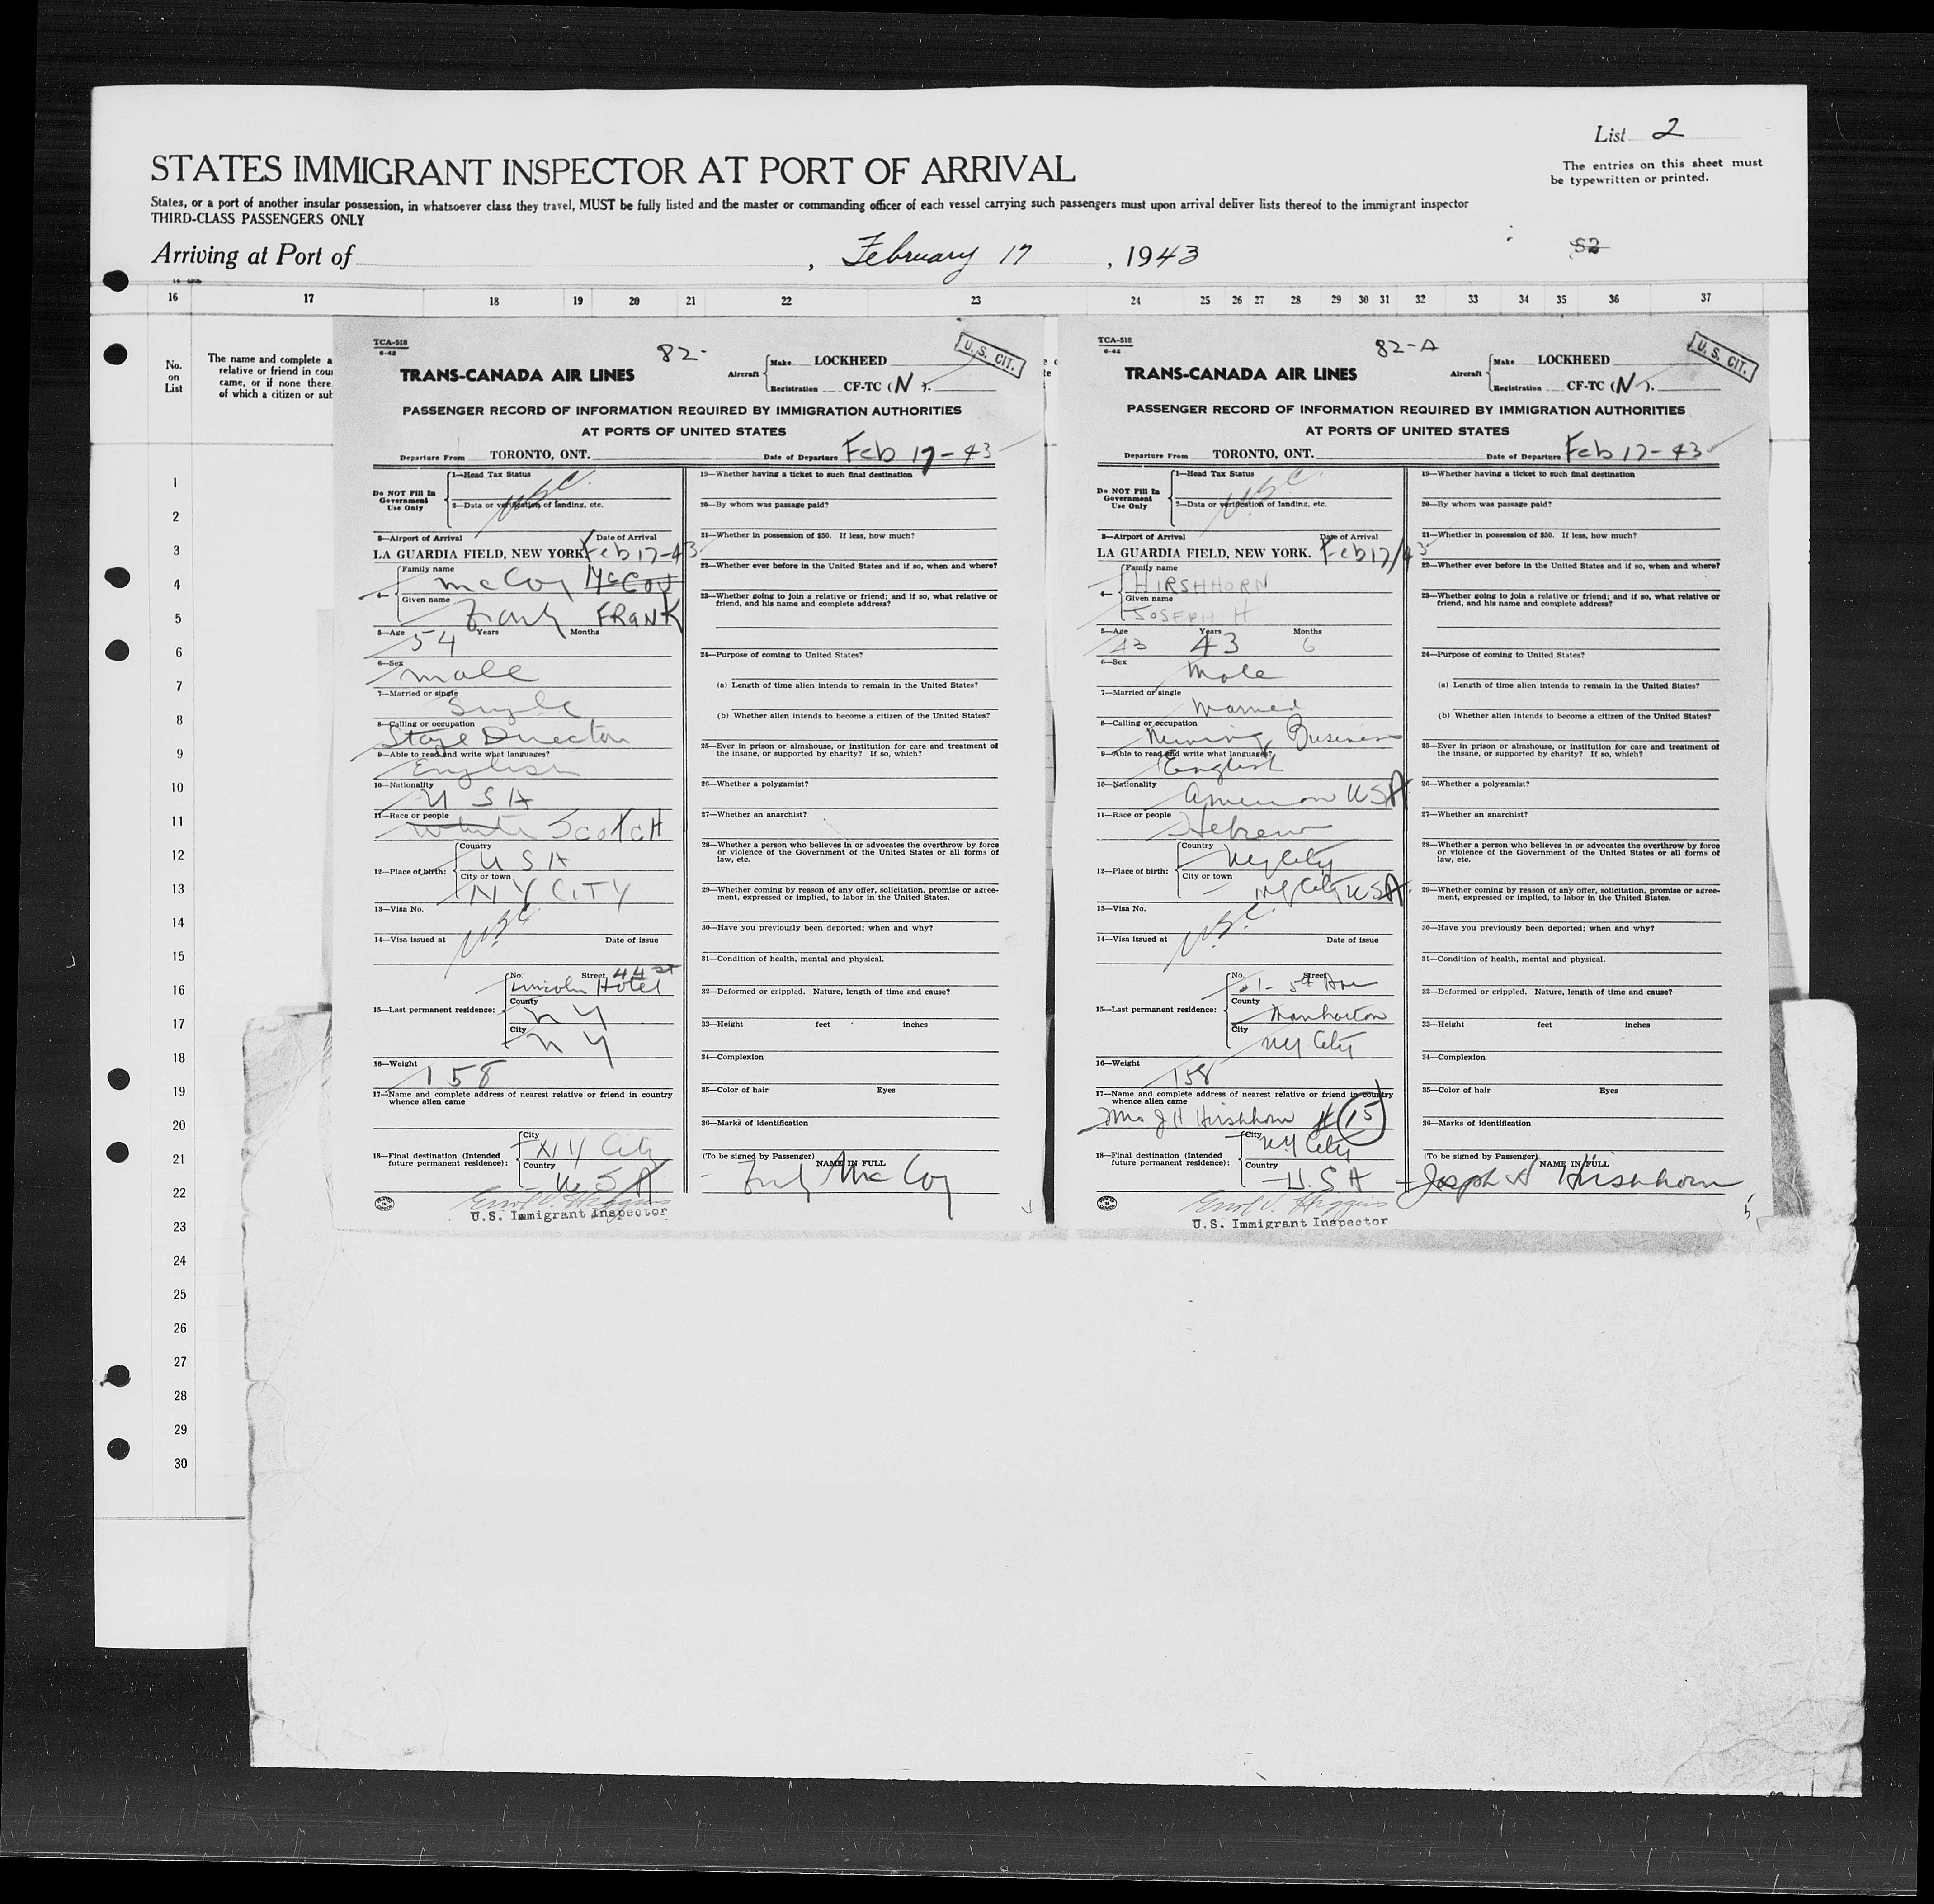 List 2
The entries on this sheet must
be typewritten or printed.
STATES IMMIGRANT INSPECTOR AT PORT OF ARRIVAL
States, or a port of another insular possession, in whatsoever class they travel, MUST be fully listed and the master or commanding officer of each vessel carrying such passengers must upon arrival deliver lists thereof to the immigrant inspector
THIRD-CLASS PASSENGERS ONLY
Arriving at Port of , February 17 , 1943
16 17 18 19 20 21 22 23 24 25 26 27 28 29 30 31 32 33 34 35 36 37
No.
on
List
The name and complete a
relative or friend in cou
came, or if none there
of which a citizen or sub
1
2
3
4
5
6
7
8
9
10
11
12
13
14
15
16
17
18
19
20
21
22
23
24
25
26
27
28
29
30
TCA-518
6-42
82-
U.S. CIT.
TRANS-CANADA AIR LINES
Aircraft
Make LOCKHEED
Registration CF-TC (N).
PASSENGER RECORD OF INFORMATION REQUIRED BY IMMIGRATION AUTHORITIES
AT PORTS OF UNITED STATES
Departure From TORONTO, ONT. Date of Departure Feb 17-43
Do NOT Fill In
Government
Use Only
1—Head Tax Status
USC
2—Data or verification of landing, etc.
3—Airport of Arrival Date of Arrival
LA GUARDIA FIELD, NEW YORK. Feb 17-43
4—
Family name
McCoy McCoy
Given name
Frank FRANK
5—Age 54 Years Months
6—Sex
male
7—Married or single
Single
8—Calling or occupation
Stage Director
9—Able to read and write what languages?
English
10—Nationality
U S A
11—Race or people
White SCOTCH
12—Place of birth:
Country
U S A
City or town
N Y CITY
13—Visa No.
USC
14—Visa issued at Date of issue
15—Last permanent residence:
No. Street 44 St
Lincoln Hotel
County
N Y
City
N Y
16—Weight
158
17—Name and complete address of nearest relative or friend in country
whence alien came
18—Final destination (Intended
future permanent residence):
City
N Y City
Country
U S A
U.S. Immigrant Inspector
19—Whether having a ticket to such final destination
20—By whom was passage paid?
21—Whether in possession of $50. If less, how much?
22—Whether ever before in the United States and if so, when and where?
23—Whether going to join a relative or friend; and if so, what relative or
friend, and his name and complete address?
24—Purpose of coming to United States?
(a) Length of time alien intends to remain in the United States?
(b) Whether alien intends to become a citizen of the United States?
25—Ever in prison or almshouse, or institution for care and treatment of
the insane, or supported by charity? If so, which?
26—Whether a polygamist?
27—Whether an anarchist?
28—Whether a person who believes in or advocates the overthrow by force
or violence of the Government of the United States or all forms of
law, etc.
29—Whether coming by reason of any offer, solicitation, promise or agree-
ment, expressed or implied, to labor in the United States.
30—Have you previously been deported; when and why?
31—Condition of health, mental and physical.
32—Deformed or crippled. Nature, length of time and cause?
33—Height feet inches
34—Complexion
35—Color of hair Eyes
36—Marks of identification
(To be signed by Passenger) NAME IN FULL
Frank McCoy
TCA-518
6-42
82-A
U.S. CIT.
TRANS-CANADA AIR LINES
Aircraft
Make LOCKHEED
Registration CF-TC (N).
PASSENGER RECORD OF INFORMATION REQUIRED BY IMMIGRATION AUTHORITIES
AT PORTS OF UNITED STATES
Departure From TORONTO, ONT. Date of Departure Feb 17-43
Do NOT Fill In
Government
Use Only
1—Head Tax Status
USC
2—Data or verification of landing, etc.
3—Airport of Arrival Date of Arrival
LA GUARDIA FIELD, NEW YORK. Feb 17/43
4—
Family name
HIRSHHORN
Given name
JOSEPH H
5—Age Years Months
43 43 6
6—Sex
Male
7—Married or single
Married
8—Calling or occupation
Mining Business
9—Able to read and write what languages?
English
10—Nationality
American USA
11—Race or people
Hebrew
12—Place of birth:
Country
NY City
City or town
NY City USA
13—Visa No.
USC
14—Visa issued at Date of issue
15—Last permanent residence:
No. Street
5th Ave
County
Manhattan
City
NY City
16—Weight
158
17—Name and complete address of nearest relative or friend in country
whence alien came
Mrs J H Hirshhorn # 15
18—Final destination (Intended
future permanent residence):
City
NY City
Country
U.S A
U.S. Immigrant Inspector
19—Whether having a ticket to such final destination
20—By whom was passage paid?
21—Whether in possession of $50. If less, how much?
22—Whether ever before in the United States and if so, when and where?
23—Whether going to join a relative or friend; and if so, what relative or
friend, and his name and complete address?
24—Purpose of coming to United States?
(a) Length of time alien intends to remain in the United States?
(b) Whether alien intends to become a citizen of the United States?
25—Ever in prison or almshouse, or institution for care and treatment of
the insane, or supported by charity? If so, which?
26—Whether a polygamist?
27—Whether an anarchist?
28—Whether a person who believes in or advocates the overthrow by force
or violence of the Government of the United States or all forms of
law, etc.
29—Whether coming by reason of any offer, solicitation, promise or agree-
ment, expressed or implied, to labor in the United States.
30—Have you previously been deported; when and why?
31—Condition of health, mental and physical.
32—Deformed or crippled. Nature, length of time and cause?
33—Height feet inches
34—Complexion
35—Color of hair Eyes
36—Marks of identification
(To be signed by Passenger) NAME IN FULL
Joseph H Hirshhorn